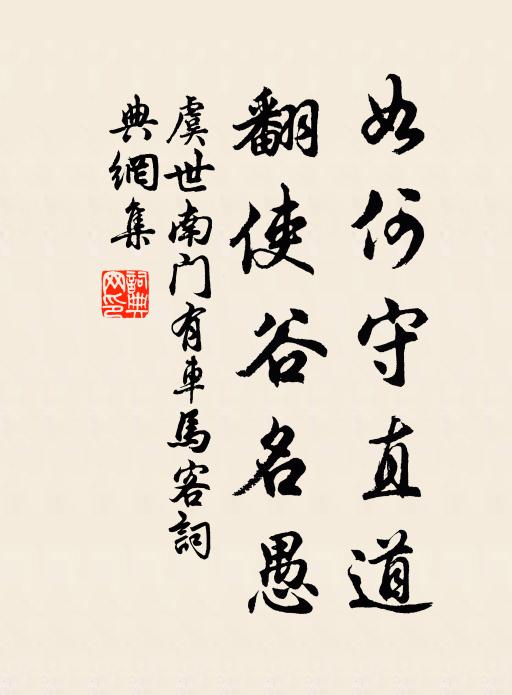 如何守直道
翻使谷名愚
虞世南门有車馬客詞
典網集
詞典网印